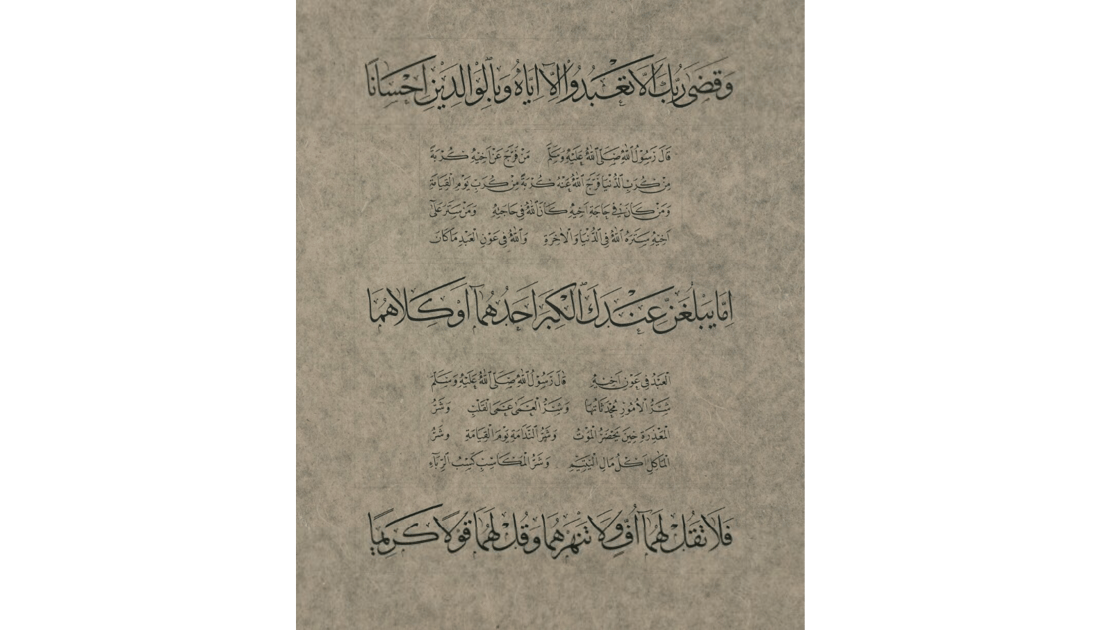 وَقَضَى رَبُّكَ أَلَّا تَعْبُدُوا إِلَّا إِيَّاهُ وَبِالْوَالِدَيْنِ إِحْسَانًا
قَالَ رَسُوْلُ اللهِ صَلَّى اللهُ عَلَيْهِ وَسَلَّمَ مَنْ فَرَّجَ عَنْ اَخِيْهِ كُرْبَةً
مِنْ كُرَبِ الدُّنْيَا فَرَّجَ اللهُ عَنْهُ كُرْبَةً مِنْ كُرَبِ يَوْمِ الْقِيَامَةِ
وَمَنْ كَانَ فِي حَاجَةِ اَخِيْهِ كَانَ اللهُ فِي حَاجَتِهِ وَمَنْ سَتَرَ عَلَى
اَخِيْهِ سَتَرَهُ اللهُ فِي الدُّنْيَا وَالْاٰخِرَةِ وَاللهُ فِي عَوْنِ الْعَبْدِ مَا كَانَ
اِمَّا يَبْلُغَنَّ عِنْدَكَ الْكِبَرَ اَحَدُهُمَآ اَوْ كِلَاهُمَا
الْعَبْدُ فِي عَوْنِ اَخِيْهِ قَالَ رَسُوْلُ اللهِ صَلَّى اللهُ عَلَيْهِ وَسَلَّمَ
شَرُّ الْاُمُوْرِ مُحْدَثَاتُهَا وَشَرُّ الْعَمَى عَمَى الْقَلْبِ وَشَرُّ
الْمَعْذِرَةِ حِيْنَ يَحْضُرُ الْمَوْتُ وَشَرُّ النَّدَامَةِ يَوْمَ الْقِيَامَةِ وَشَرُّ
الْمَاْكَلِ اَكْلُ مَالِ الْيَتِيْمِ وَشَرُّ الْمَكَاسِبِ كَسْبُ الرِّبَآءِ
فَلَا تَقُلْ لَهُمَآ اُفٍّ وَلَا تَنْهَرْهُمَا وَقُلْ لَهُمَا قَوْلًا كَرِيْمًا